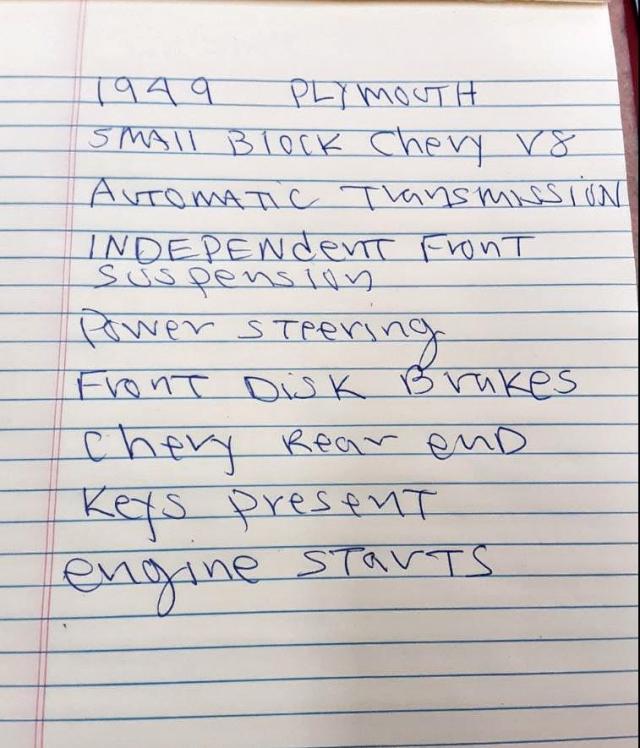 1949 PLYMOUTH
SMAll BlOCK Chevy V8
AUTOMATIC TransmissiON
INDEPENdenT FronT
suspension
Power sTeering
FronT DiSK Brakes
Chevy Rear enD
Keys presenT
engine STarTS